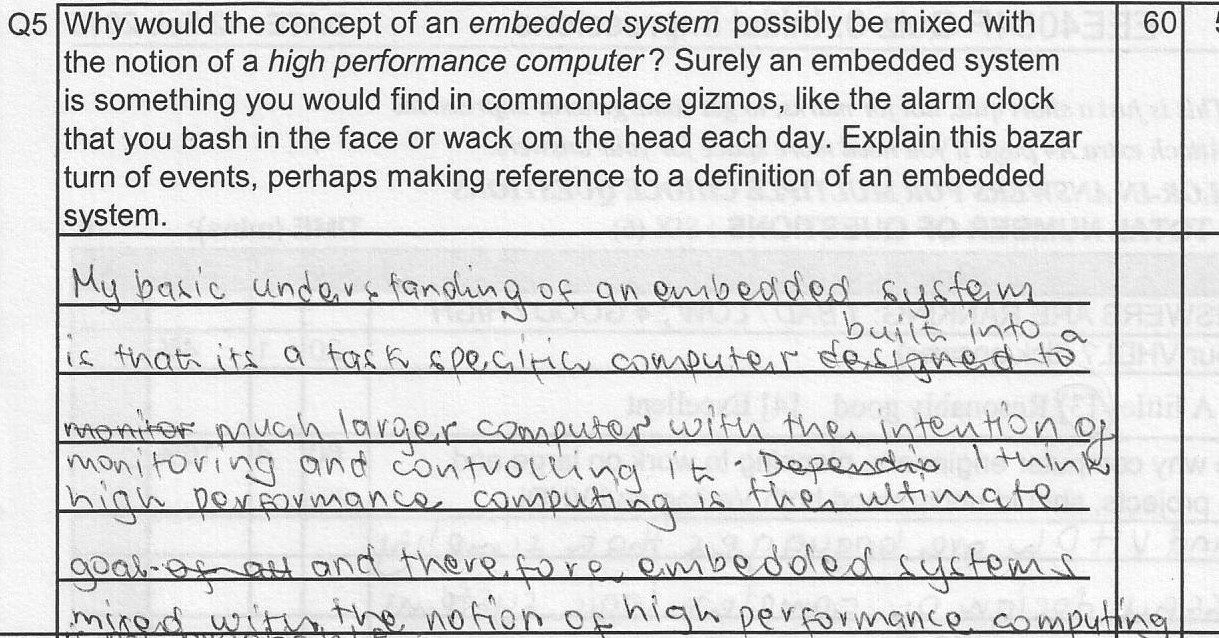 Q5 Why would the concept of an embedded system possibly be mixed with 60
the notion of a high performance computer? Surely an embedded system
is something you would find in commonplace gizmos, like the alarm clock
that you bash in the face or wack om the head each day. Explain this bazar
turn of events, perhaps making reference to a definition of an embedded
system.
My basic understanding of an embedded system
built into
is that its a task specific computer designed to a
monitor much larger computer with the intention of
monitoring and controlling it. Dependin I think
high performance computing is the ultimate
goal of all and therefore embedded systems
mixed with the notion of high performance computing